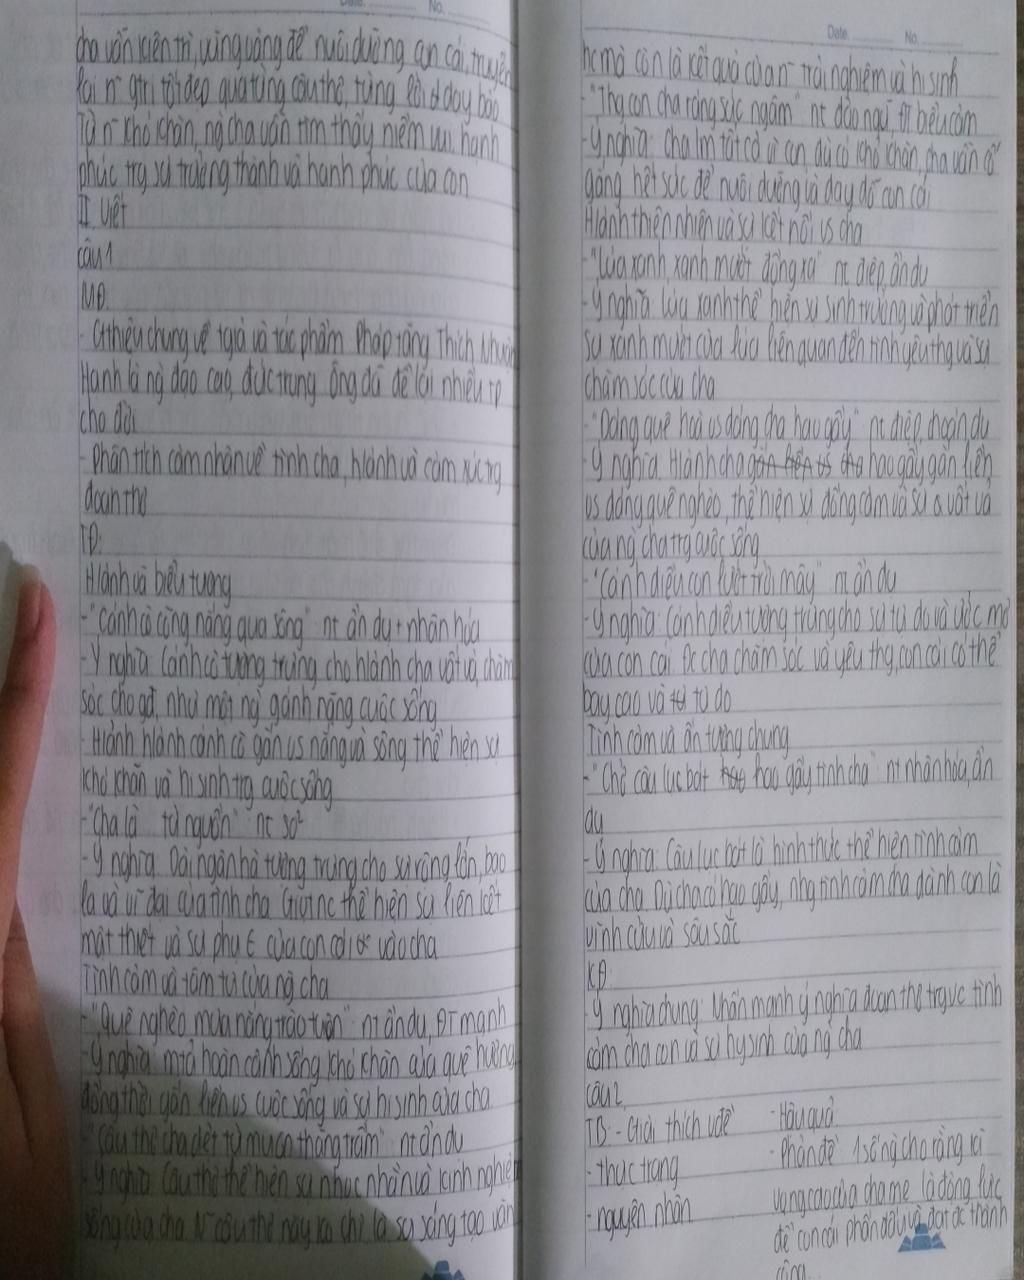 Date. No.
cha vẫn kiên trì, vững vàng để nuôi dưỡng con cái, truyền
lại n~ gtrị tốt đẹp qua từng câu thơ, từng lời dạy bảo
Từ n~ khó khăn, ng cha vẫn tìm thấy niềm vui, hạnh
phúc trg sự trưởng thành và hạnh phúc của con
II Viết
câu 1
MĐ:
- Gthiệu chung về tgiả và tác phẩm Pháp tăng Thích Nhuận
Hạnh là ng đạo cao, đức trung ông đã để lại nhiều tp
cho đời
- phân tích cảm nhận về tình cha, h/ảnh và cảm xúc trg
đoạn thơ
TĐ:
H/ảnh và biểu tượng
- "Cánh cò cõng nắng qua sông" nt ẩn dụ + nhân hóa
- Ý nghĩa Cánh cò tượng trưng cho h/ảnh cha vất vả, chăm
sóc cho gđ, như một ng gánh nặng cuộc sống
- H/ảnh h/ảnh cánh cò gắn vs nắng và sông thể hiện sự
khó khăn và hi sinh trg cuộc sống
- "Cha là từ nguồn" nt so²
- Ý nghĩa Dải ngân hà tượng trưng cho sự rộng lớn, bao
la và vĩ đại của tình cha Giọt nc thể hiện sự liên kết
mật thiết và sự phụ € của con cái vào cha
Tình cảm và tâm tư của ng cha
- "Quê nghèo mưa nắng trào tuôn" nt ẩn dụ, ĐT mạnh
- Ý nghĩa m/tả hoàn cảnh sống khó khăn của quê hương,
đồng thời gắn liền vs cuộc sống và sự hi sinh của cha
- "Câu thơ cha dệt từ muôn thăng trầm" nt ẩn dụ
- Ý nghĩa Câu thơ thể hiện sự nhục nhằn và kinh nghiệm
sống của cha N~ câu thơ này ko chỉ là sự sáng tạo văn
Date. No.
học mà còn là kết quả của n~ trải nghiệm và hi sinh
- "Thg con cha ráng sức ngâm" nt đảo ngữ, ĐT biểu cảm
- Ý nghĩa: cha lm tất cả vì con dù có khó khăn, cha vẫn cố
gắng hết sức để nuôi dưỡng và dạy dỗ con cái
H/ảnh thiên nhiên và sự kết nối vs cha
- "Lúa xanh, xanh mướt đồng xa" nt điệp, ẩn dụ
- Ý nghĩa: Lúa xanh thể hiện sự sinh trưởng và phát triển
sự xanh mướt của lúa liên quan đến tình yêu thg và sự
chăm sóc của cha
- "Dáng quê hoà vs dáng cha hao gầy" nt điệp, hoán dụ
- Ý nghĩa. H/ảnh cha gắn liền vs cha hao gầy gắn liền
vs dáng quê nghèo, thể hiện sự đồng cảm và sự vất vả
của ng cha trg cuộc sống
- "Cánh diều con lướt trời mây" nt ẩn dụ
- Ý nghĩa: Cánh diều tượng trưng cho sự tự do và ước mơ
của con cái. Đc cha chăm sóc và yêu thg, con cái có thể
bay cao và tự do
Tình cảm và ấn tượng chung
- "Chở câu lục bát hao gầy tình cha" nt nhân hóa, ẩn
dụ
- Ý nghĩa: Câu lục bát là hình thức thể hiện tình cảm
của cha Dù cha có hao gầy, nhg tình cảm cha dành con là
vĩnh cửu và sâu sắc
KĐ:
- Ý nghĩa chung: Nhấn mạnh ý nghĩa đoạn thơ trg vc tình
cảm cha con và sự hy sinh của ng cha
câu 2
TB: - Giải thích vđề
- thực trạng
- nguyên nhân
- Hậu quả
- Phản đề 1 số ng cho rằng kì
vọng cao của cha mẹ là động lực
để con cái phấn đấu và đạt đc thành
công...